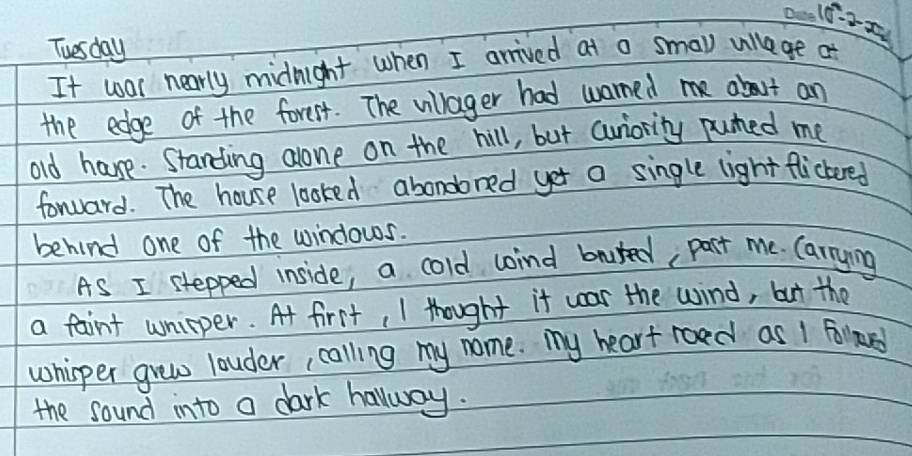 Tuesday
It was nearly midnight when I arrived at a small village at
the edge of the forest. The villager had warned me about an
old house. Standing alone on the hill, but curiosity pushed me
forward. The house looked abandoned yet a single light flickered
behind one of the windows.
As I stepped inside, a cold wind brushed, past me. Carrying
a faint whisper. At first, I thought it was the wind, but the
whisper grew louder, calling my name. My heart raced as I followed
the sound into a dark hallway.